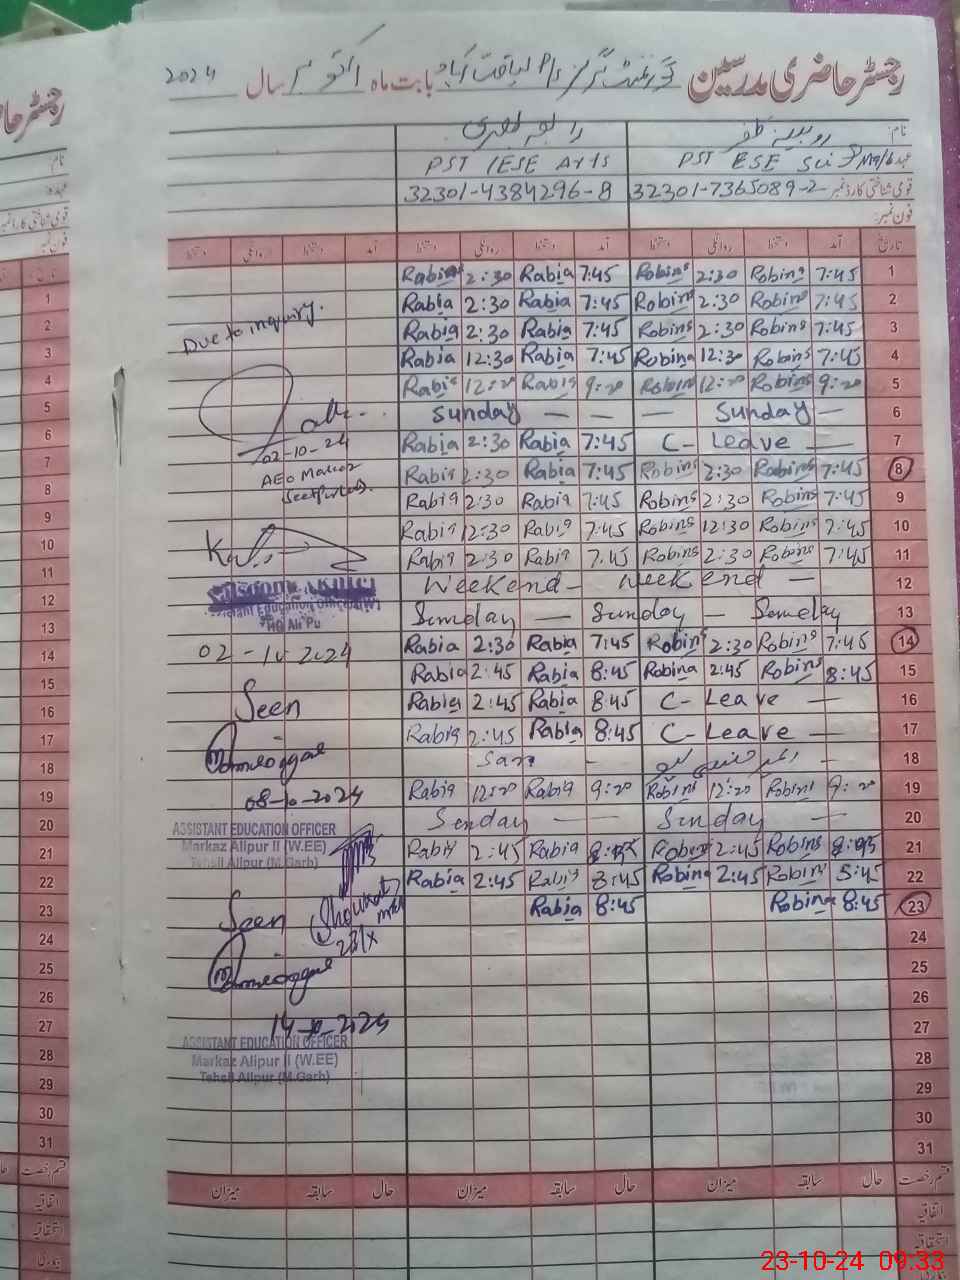 رجسٹر حاضری مدرسین گورنمنٹ گرلز P/S لیاقت آباد بابت ماہ اکتوبر سال 2024
نام:
روبینہ
عہدہ PST ESE Sci PST /ESE Arts
قومی شناختی کارڈ نمبر 32301-7365089-2 32301-4384296-8
فون نمبر:
تاریخ آمد دستخط روانگی دستخط آمد دستخط روانگی دستخط آمد دستخط روانگی دستخط
1 7:45 Robina 2:30 Robina 7:45 Rabia 2:30 Rabia
2 7:45 Robina 2:30 Robina 7:45 Rabia 2:30 Rabia
3 7:45 Robina 2:30 Robina 7:45 Rabia 2:30 Rabia
4 7:45 Robina 12:30 Robina 7:45 Rabia 12:30 Rabia
5 9:20 Robina 12:20 Robina 9:20 Rabia 12:20 Rabia
6 Sunday — — — Sunday —
7 C-Leave — 7:45 Rabia 2:30 Rabia
8 7:45 Robina 2:30 Robina 7:45 Rabia 2:30 Rabia
9 7:45 Robina 2:30 Robina 7:45 Rabia 2:30 Rabia
10 7:45 Robina 12:30 Robina 7:45 Rabia 12:30 Rabia
11 7:45 Robina 2:30 Robina 7:45 Rabia 2:30 Rabia
12 Weekend - Weekend —
13 Sunday — Sunday — Sunday
14 7:45 Robina 2:30 Robina 7:45 Rabia 2:30 Rabia
15 8:45 Robina 2:45 Robina 8:45 Rabia 2:45 Rabia
16 C-Leave — 8:45 Rabia 2:45 Rabia
17 C-Leave — 8:45 Rabia 2:45 Rabia
18
19 9:20 Robina 12:20 Robina 9:20 Rabia 12:20 Rabia
20 Sunday — Sunday —
21 Robina 2:45 Robina Rabia 2:45 Rabia
22 8:45 Robina 2:45 Robina 8:45 Rabia 2:45 Rabia
23 8:45 Robina 8:45 Rabia
24
25
26
27
28
29
30
31
قسم رخصت حال سابقہ میزان حال سابقہ میزان حال سابقہ میزان
اتفاقیہ
استحقاقیہ
Due to inquiry.
02-10-24
AEO Markaz
02-10-2024
Seen
08-10-2024
ASSISTANT EDUCATION OFFICER
Markaz Alipur II (W.EE)
Tehsil Alipur (M.Garh)
Shoukat
23/X
Seen
14-10-2024
ASSISTANT EDUCATION OFFICER
Markaz Alipur II (W.EE)
Tehsil Alipur (M.Garh)
23-10-24 09:33